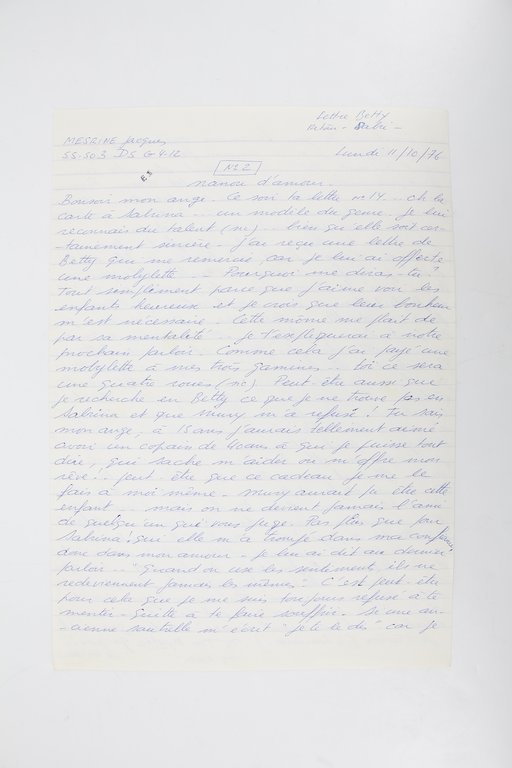 Lettre Betty
Retour - Sabri -
MESRINE Jacques
SS.SO.3 D5 G 4.12
Lundi 11/10/76
N° 2
nanou d'amour
Bonsoir mon ange. Ce soir ta lettre n° 14... ch la
carte à Sabrina... un modèle du genre. Je lui
reconnais du talent (nc)... bien qu'elle soit cer-
-tainement sincère. J'ai reçu une lettre de
Betty qui me remercie, car je lui ai offerte
une mobylette... - Pourquoi me diras-tu?
Tout simplement parce que j'aime voir les
enfants heureux et je crois que leur bonheur
m'est nécessaire. Cette môme me plait de
par sa mentalité... je t'expliquerai à notre
prochain parloir. Comme cela j'ai payé une
mobylette à mes trois gamines... toi ce sera
une quatre roues (nc). Peut-être aussi que
je recherche en Betty ce que je ne trouve pas en
Sabrina et que Mury m'a refusé! Tu sais
mon ange, à 15 ans j'aurais tellement aimé
avoir un copain de 40 ans à qui je puisse tout
dire, qui sache m'aider ou m'offre mon
rêve... peut être que ce cadeau je me le
fais à moi même. Mury aurait pu être cette
enfant... mais on ne devient jamais l'ami
de quelqu'un qui vous juge. Pas plus que pour
Sabrina! qui elle m'a trompé dans ma confiance
donc dans mon amour. Je lui ai dit au dernier
parloir... "Quand on use les sentiments, ils ne
redeviennent jamais les mêmes". C'est peut-être
pour cela que je me suis toujours refusé à te
mentir - quitte à te faire souffrir. Si une an-
-cienne sauterelle m'écrit "je te le dis" car je